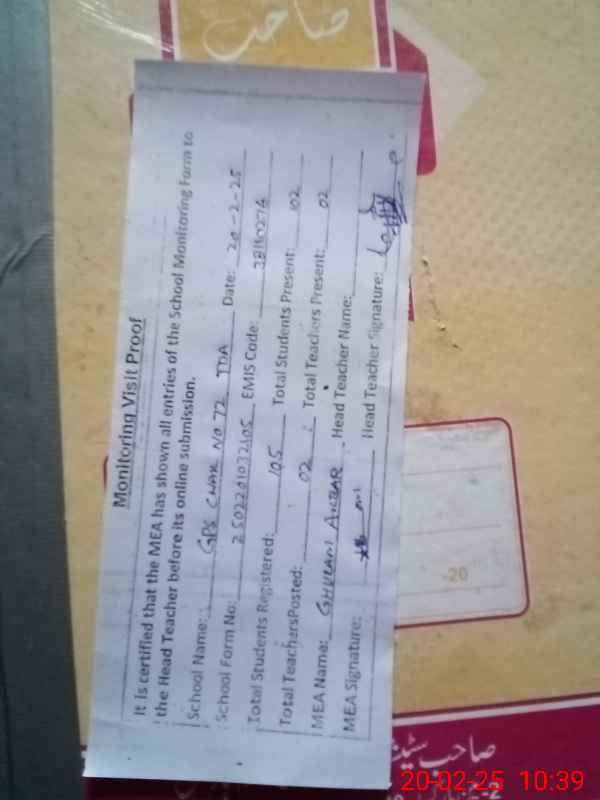 صاحب
Monitoring Visit Proof
It is certified that the MEA has shown all entries of the School Monitoring Form to
the Head Teacher before its online submission.
School Name: GPS CHAK NO 72 TDA Date: 20-2-25
School Form No: 2502201032105 EMIS Code:
Total Students Registered: 105 Total Students Present: 102
Total TeachersPosted: 02 Total Teachers Present: 02
MEA Name: GHULAM AKBAR Head Teacher Name:
MEA Signature: Head Teacher Signature:
-20
صاحب
20-02-25 10:39